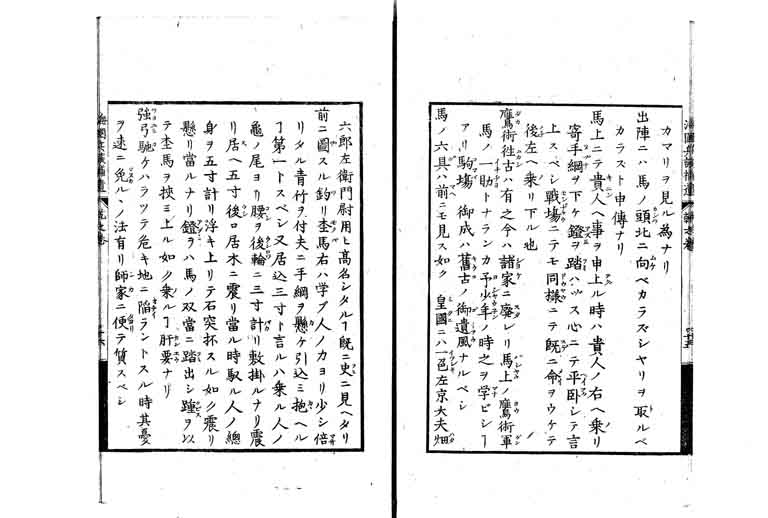 カマリヲ見ル為ナリ
出陣ニハ馬ノ頭北ニ向ベカラズシヤリヲ取ルベ
カラスト申傳ナリ
馬上ニテ貴人ヘ事ヲ申上ル時ハ貴人ノ右ヘ乗リ
寄手綱ヲ下ケ鐙ヲ踏ハヅス心ニテ平臥シテ言
上スベシ戰場ニテモ同様ニテ既ニ命ヲウケテ
後左ヘ乗リ下ル也
鷹術徃古ハ有之今ハ諸家ニ廢レリ馬上ノ鷹術軍
馬ノ一助トナランカ予少年ノ時之ヲ学ビシヿ
アリ駒塲ノ御成ハ舊古ノ御遺風ナルベシ
馬ノ六具ハ前ニモ見ス如ク 皇國ニハ一色左京大夫畑
六郎左衛門尉用ヒ高名シタルヿ既ニ史ニ見ヘタリ
前ニ圖スル釣リ杢馬右ハ学ブ人ノカヨリ少シ倍
リタル青竹ヲ付夫ニ手綱ヲ懸ケ引込ミ抱ヘル
ヿ第一トスベシ又居込三寸ト言ルハ乗ル人ノ
龜ノ尾ヨリ腰ヲ後輪ニ三寸計リ敷掛ルナリ震
リ居ヘ五寸後ロ居木ニ震リ當ル時馭ル人ノ總
身ヲ五寸計リ浮キ上リテ石突杯スル如ク震リ
懸リ當ルナリ鐙ヲハ馬ノ双當ニ踏出シ踵ヲ以
テ杢馬ヲ挾ミ上ル如ク乗ルヿ肝要ナリ
強弓馳ケハラツテ危キ地ニ陥ラントスル時其憂
ヲ速ニ免ルヽノ法有リ師家ニ便テ質スベシ